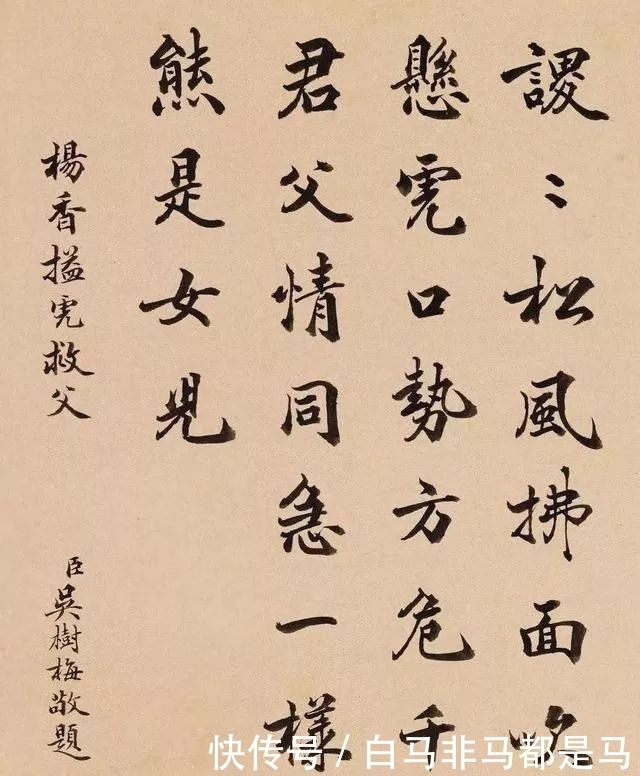 謖〻松風拂面吹
懸虎口勢方危千
君父情同急一樣
熊是女兒
楊香搤虎救父
臣吳樹梅敬題
快传号 / 白马非马都是马